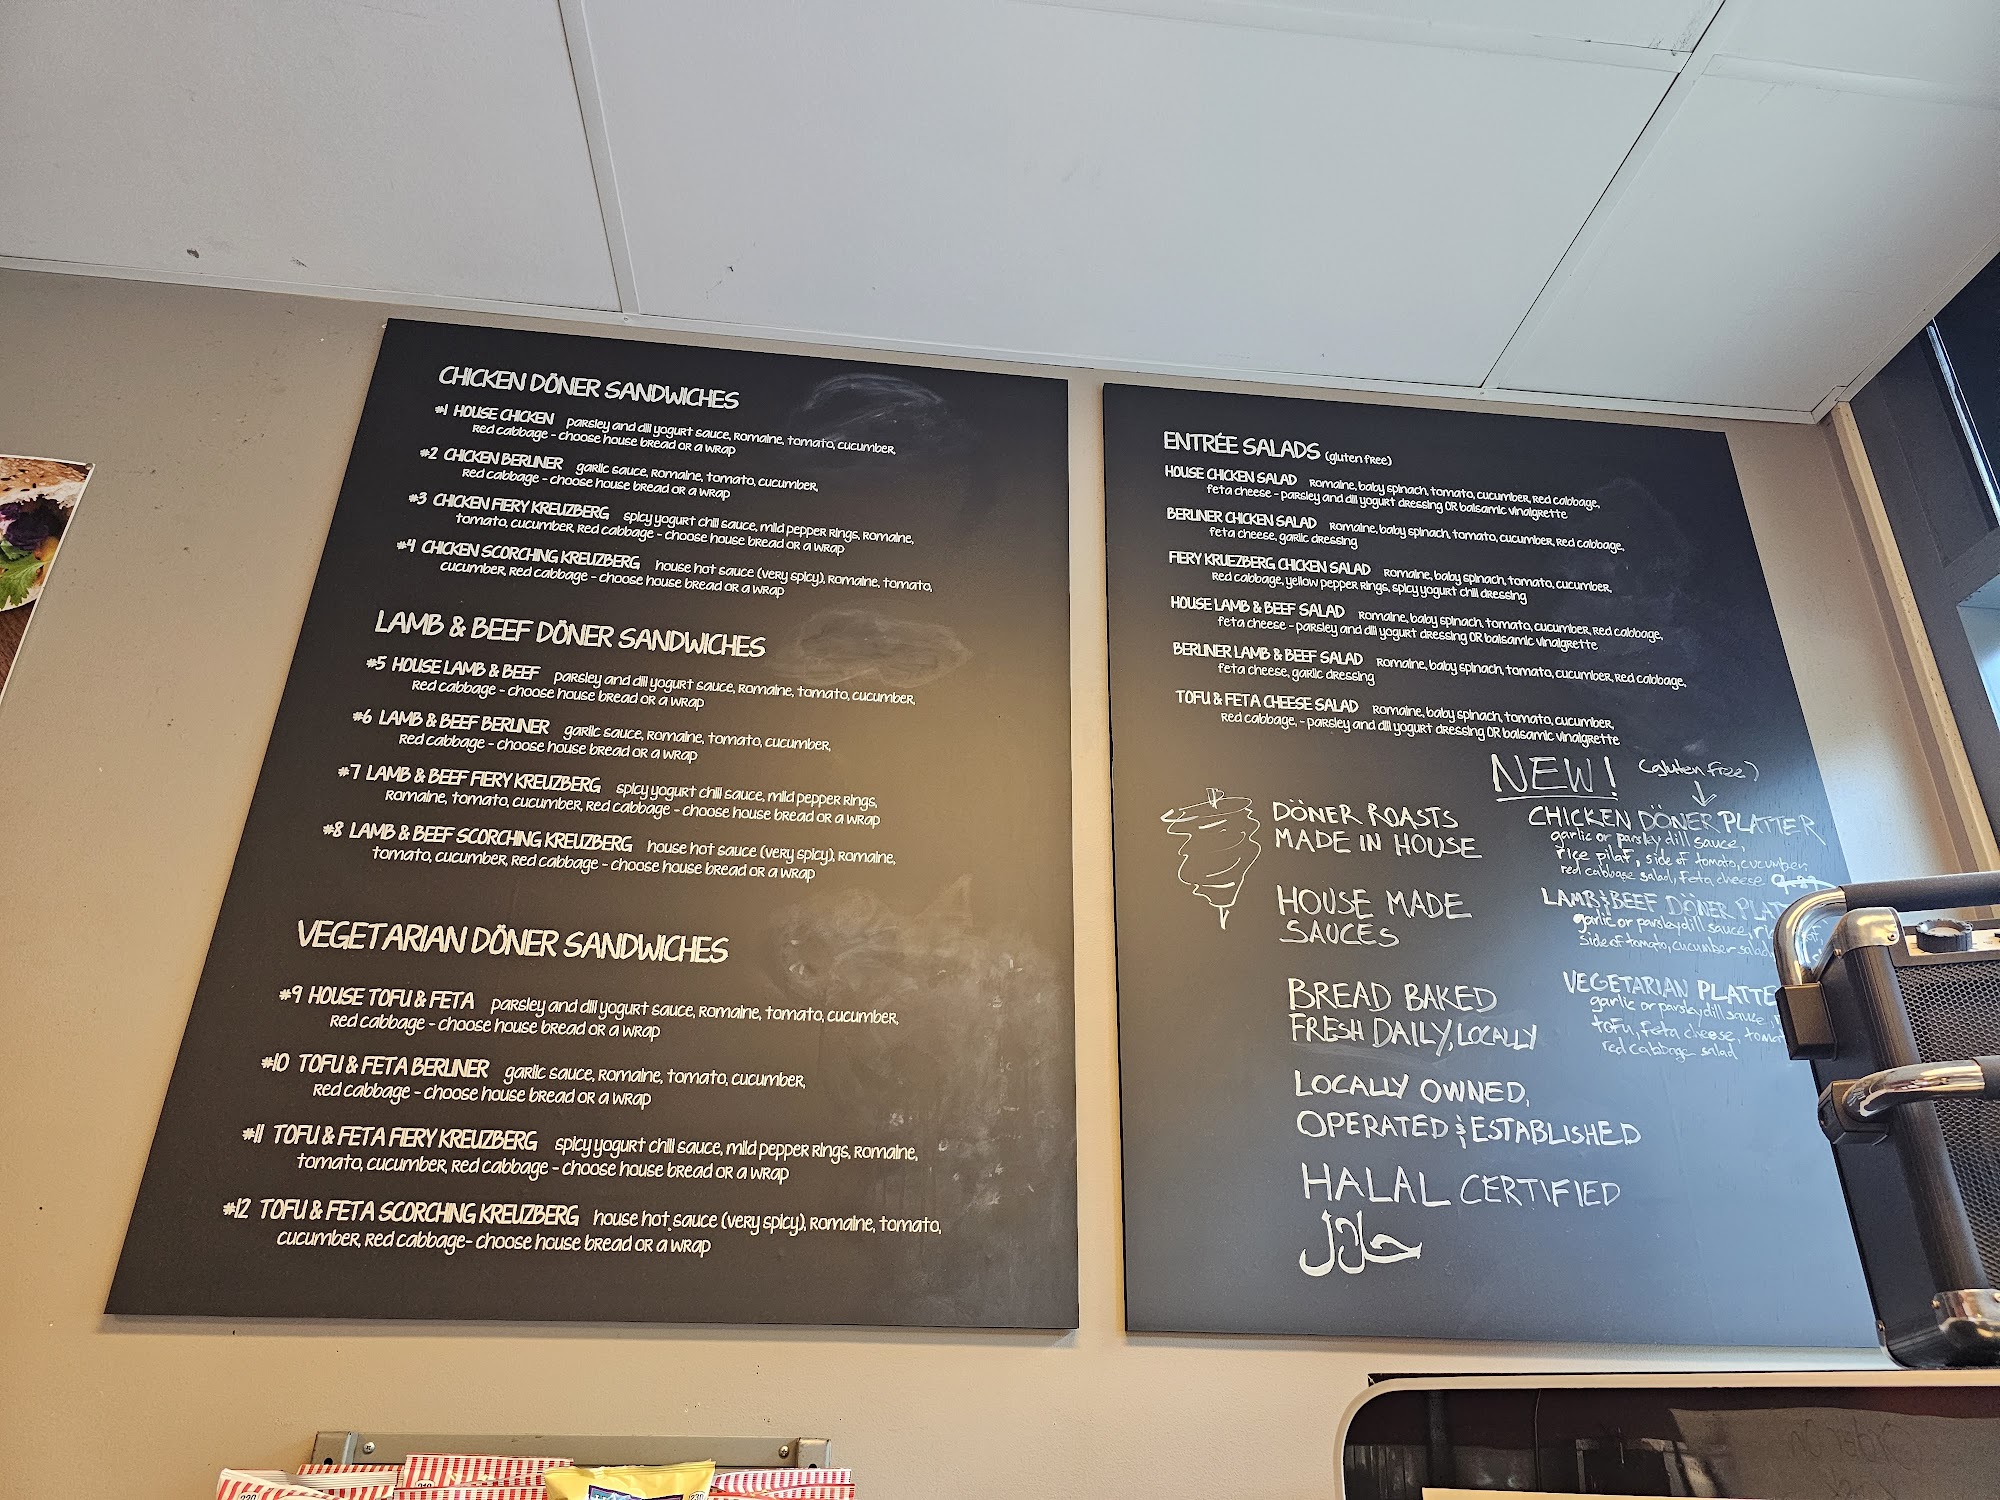 CHICKEN DÖNER SANDWICHES
#1 HOUSE CHICKEN parsley and dill yogurt sauce, romaine, tomato, cucumber,
red cabbage - choose house bread or a wrap
#2 CHICKEN BERLINER garlic sauce, romaine, tomato, cucumber,
red cabbage - choose house bread or a wrap
#3 CHICKEN FIERY KREUZBERG spicy yogurt chili sauce, mild pepper rings, romaine,
tomato, cucumber, red cabbage - choose house bread or a wrap
#4 CHICKEN SCORCHING KREUZBERG house hot sauce (very spicy), romaine, tomato,
cucumber, red cabbage - choose house bread or a wrap
LAMB & BEEF DÖNER SANDWICHES
#5 HOUSE LAMB & BEEF parsley and dill yogurt sauce, romaine, tomato, cucumber,
red cabbage - choose house bread or a wrap
#6 LAMB & BEEF BERLINER garlic sauce, romaine, tomato, cucumber,
red cabbage - choose house bread or a wrap
#7 LAMB & BEEF FIERY KREUZBERG spicy yogurt chili sauce, mild pepper rings,
romaine, tomato, cucumber, red cabbage - choose house bread or a wrap
#8 LAMB & BEEF SCORCHING KREUZBERG house hot sauce (very spicy), romaine,
tomato, cucumber, red cabbage - choose house bread or a wrap
VEGETARIAN DÖNER SANDWICHES
#9 HOUSE TOFU & FETA parsley and dill yogurt sauce, romaine, tomato, cucumber,
red cabbage - choose house bread or a wrap
#10 TOFU & FETA BERLINER garlic sauce, romaine, tomato, cucumber,
red cabbage - choose house bread or a wrap
#11 TOFU & FETA FIERY KREUZBERG spicy yogurt chili sauce, mild pepper rings, romaine,
tomato, cucumber, red cabbage - choose house bread or a wrap
#12 TOFU & FETA SCORCHING KREUZBERG house hot sauce (very spicy), romaine, tomato,
cucumber, red cabbage- choose house bread or a wrap
ENTRÉE SALADS (gluten free)
HOUSE CHICKEN SALAD romaine, baby spinach, tomato, cucumber, red cabbage,
feta cheese - parsley and dill yogurt dressing OR balsamic vinaigrette
BERLINER CHICKEN SALAD romaine, baby spinach, tomato, cucumber, red cabbage,
feta cheese, garlic dressing
FIERY KRUEZBERG CHICKEN SALAD romaine, baby spinach, tomato, cucumber,
red cabbage, yellow pepper rings, spicy yogurt chili dressing
HOUSE LAMB & BEEF SALAD romaine, baby spinach, tomato, cucumber, red cabbage,
feta cheese - parsley and dill yogurt dressing OR balsamic vinaigrette
BERLINER LAMB & BEEF SALAD romaine, baby spinach, tomato, cucumber, red cabbage,
feta cheese, garlic dressing
TOFU & FETA CHEESE SALAD romaine, baby spinach, tomato, cucumber,
red cabbage, - parsley and dill yogurt dressing OR balsamic vinaigrette
DÖNER ROASTS
MADE IN HOUSE
HOUSE MADE
SAUCES
BREAD BAKED
FRESH DAILY, LOCALLY
LOCALLY OWNED,
OPERATED & ESTABLISHED
HALAL CERTIFIED
حلال
NEW! (gluten free)
CHICKEN DÖNER PLATTER
garlic or parsley dill sauce,
rice pilaf, side of tomato, cucumber
red cabbage salad, feta cheese
LAMB & BEEF DÖNER PLAT
garlic or parsley dill sauce,
side of tomato, cucumber salad
VEGETARIAN PLATTE
garlic or parsley dill sauce,
tofu, feta cheese,
red cabbage salad